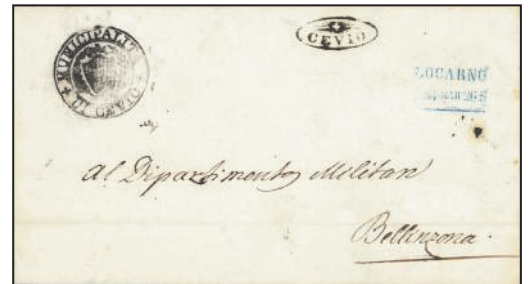 MUNICIPALITÀ
DI CEVIO
CEVIO
LOCARNO
Al Dipartimento Militare
Bellinzona.